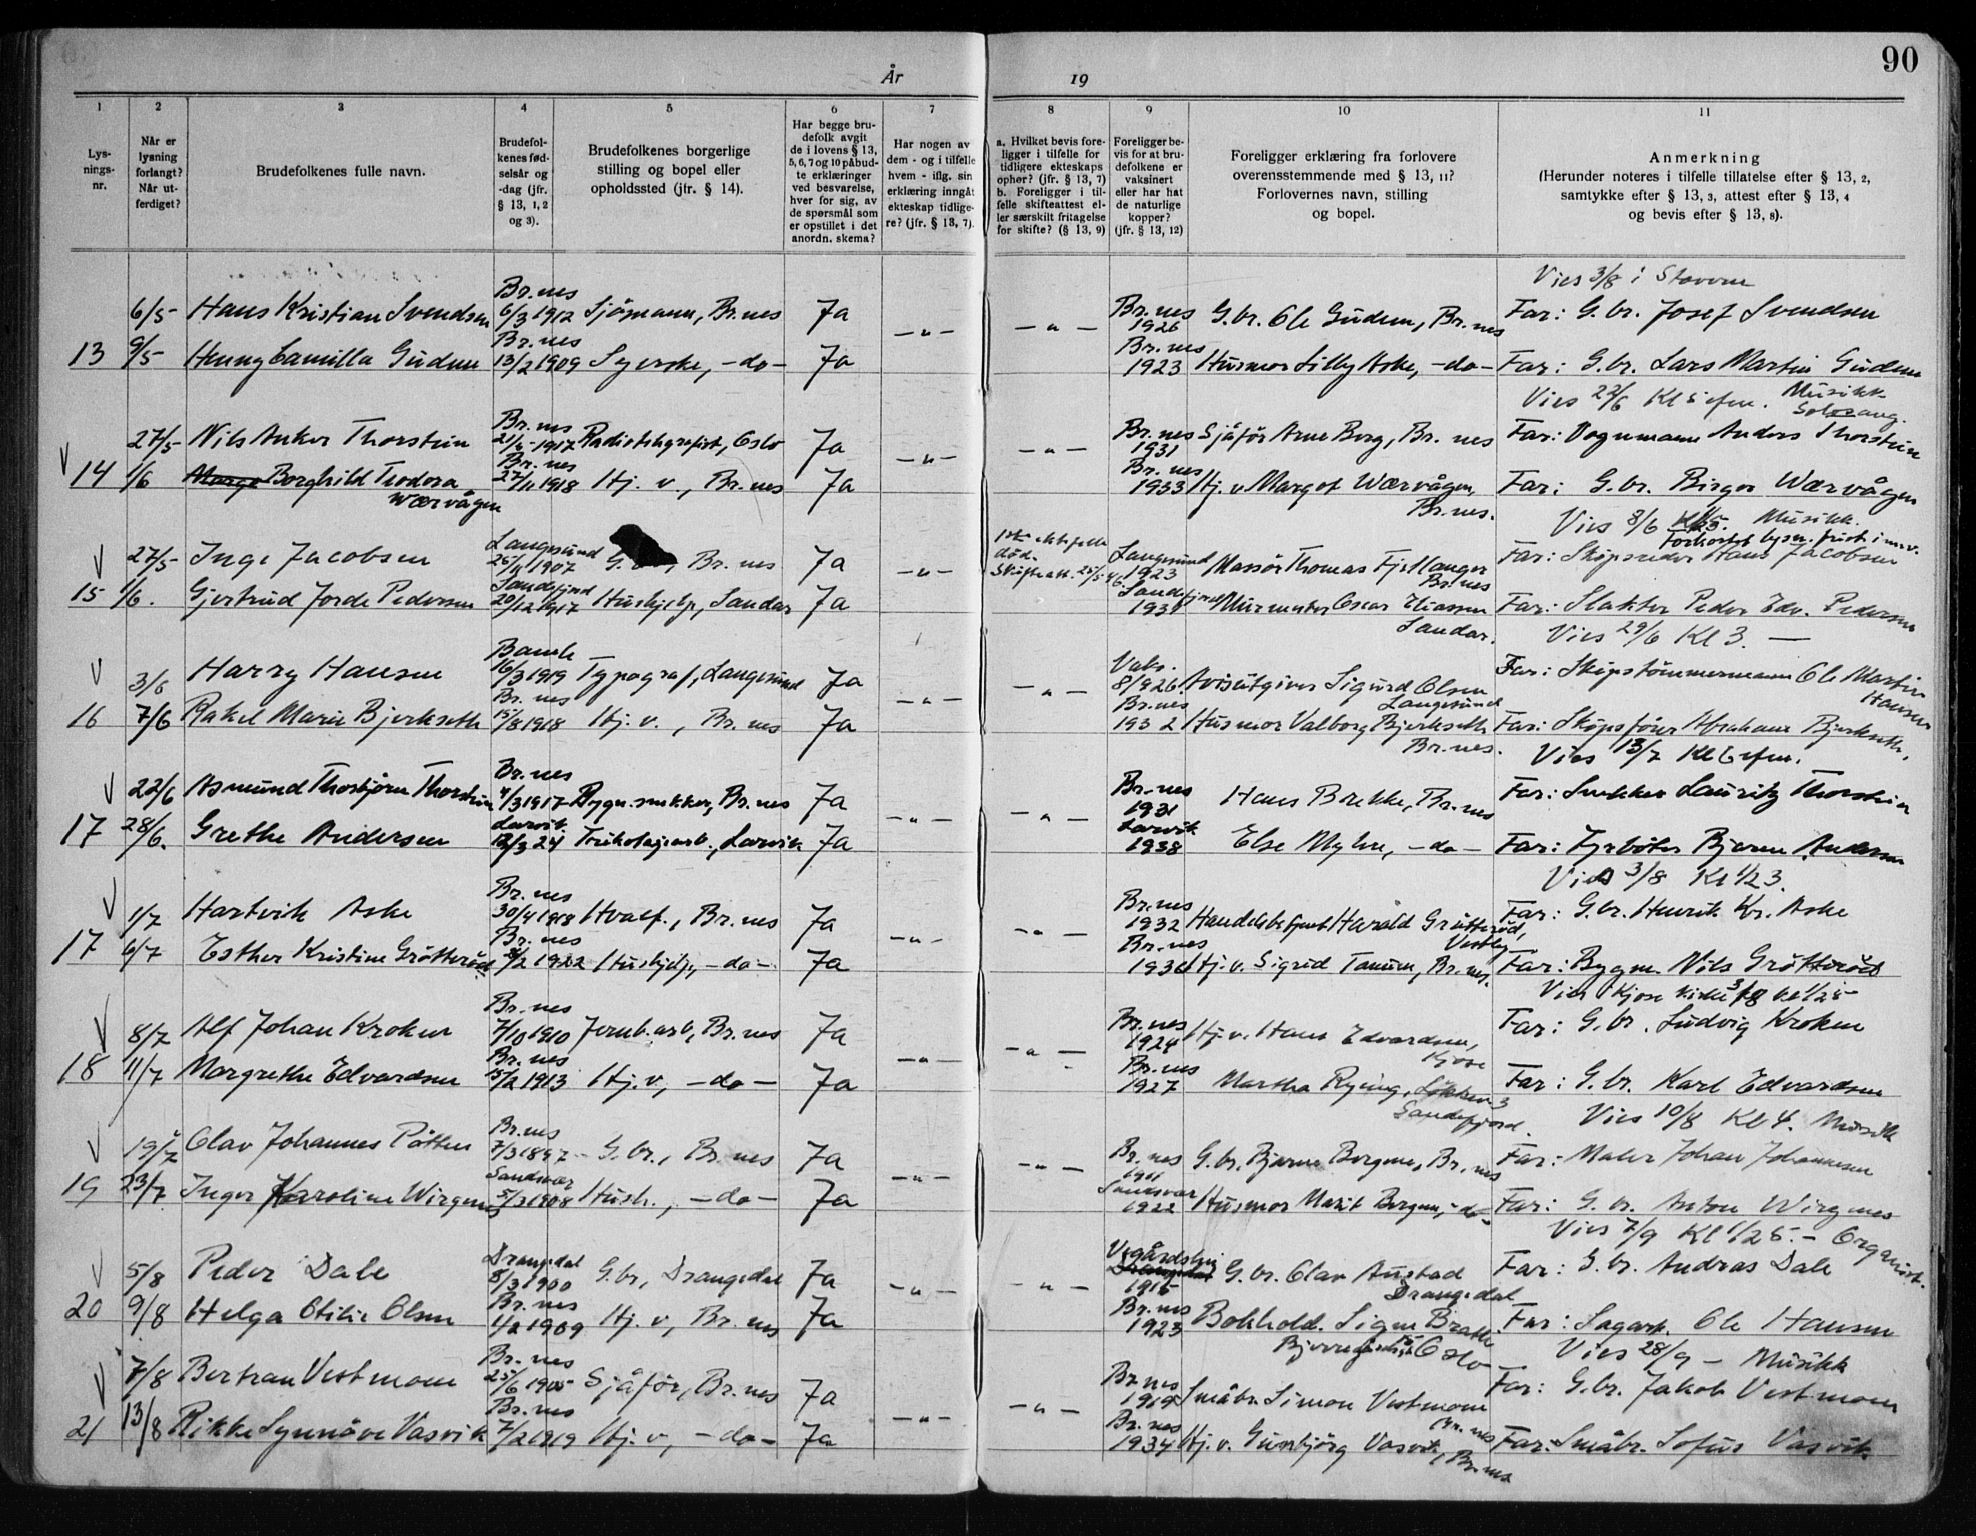 90
År
19
1
2
3
4
5
6
7
8
9
10
11
Lys-
nings-
nr.
Når er
lysning
forlangt?
Når ut-
ferdiget?
Brudefolkenes fulle navn.
Brudefol-
kenes fød-
selsår og
-dag (jfr.
§ 13, 1, 2
og 3).
Brudefolkenes borgerlige
stilling og bopel eller
opholdssted (jfr. § 14).
Har begge bru-
defolk avgit
de i lovens § 13,
5, 6, 7 og 10 påbud-
te erklæringer
ved besvarelse,
hver for sig, av
de spørsmål som
er opstillet i det
anordn. skema?
Har nogen av
dem - og i tilfelle
hvem - iflg. sin
erklæring inngått
ekteskap tidlige-
re? (jfr. § 13, 7).
a. Hvilket bevis fore-
ligger i tilfelle for
tidligere ekteskaps
ophør? (jfr. § 13, 7)
b. Foreligger i til-
felle skifteattest el-
ler særskilt fritagelse
for skifte? (§ 13, 9)
Foreligger be-
vis for at bru-
defolkene er
vaksinert
eller har hat
de naturlige
kopper?
(jfr. § 13, 12)
Foreligger erklæring fra forlovere
overensstemmende med § 13, 11?
Forlovernes navn, stilling
og bopel.
Anmerkning
(Herunder noteres i tilfelle tillatelse efter § 13, 2,
samtykke efter § 13, 3, attest efter § 13, 4
og bevis efter § 13, 8).
Vies 3/8 i Stavern
6/5 Hans Kristian Svendsen Br.nes 6/3 1912 Sjömann, Br.nes Ja -"- -"- Br.nes 1926 G.br. Ole Gudem, Br.nes Far: G.br. Josef Svendsen
13 9/5 Henny Camilla Gudem Br.nes 13/2 1909 Syerske, -do- Ja Br.nes 1923 Husmor Lilly Aske, -do- Far: G.br. Lars Martin Gudem
Vies 22/6 Kl 5 efm. Musikk Solosang.
27/5 Nils Anker Thorstein Br.nes 1917 Radiotelegrafist, Oslo Ja -"- -"- Br.nes 1931 Sjåför Arne Borg, Br.nes Far: Vognmann Anders Thorstein
14 1/6 Borghild Teodora Wærvågen Br.nes 27/11 1918 Hj. v., Br.nes Ja Br.nes 1933 Hj. v. Margot Wærvågen, Br.nes. Far: G.br. Birger Wærvågen
Vies 8/6 Musikk.
Forkortet lysn. frist
27/5 Inge Jacobsen Langesund 1907 G. , Br.nes Ja -"- død. Skifteatt. 25/5 Langesund 1923 Massör Thomas Fjellanger Br.nes Far: Skipsreder Hans Jacobsen
15 1/6. Gjertrud Jorde Pedersen Sandefjord 20/12 1917 Hushjelp, Sandar Ja Sandefjord Murmester Oscar Eliassen Sandar. Far: Slakter Peder Edv. Pedersen
Vies 29/6 Kl 3. —
3/6 Harry Hansen Bamle 16/3 1919 Typograf, Langesund Ja -"- -"- Vaks. 8/9 26. Avisutgiver Sigurd Olsen Langesund Far: Skipstömmermann Ole Martin Hansen
16 7/6 Rakel Marie Bjerkseth Br.nes 15/8 1918 Hj. v., Br.nes Ja Br.nes 1932 Husmor Valborg Bjerkseth Br.nes. Far: Skipsförer Abraham Bjerkseth.
Vies 13/7 Kl 6 efm.
22/6 Asmund Thorbjörn Thorstein Br.nes 4/3 1917 Bygn.snekker, Br.nes Ja -"- -"- Br.nes 1931 Hans Brekke, Br.nes Far: Snekker Lauritz Thorstein
17 28/6. Grethe Andersen Larvik 12/3 24 Trikotagearb., Larvik Ja Larvik 1938 Else Myhre, -do- Far: Fyrböter Bjarne Andersen
Vies 3/8 Kl 1/2 3.
1/7 Hartvik Aske Br.nes 30/4 1918 Hvalf., Br.nes Ja -"- -"- Br.nes 1932 Handelsbetjent Harald Grötteröd, Vestby Far: G.br. Henrik Kr. Aske
17 6/7 Esther Kristine Grötteröd Br.nes /2 1922 Hushjelp, -do- Ja Br.nes Hj. v. Sigrid Tanum, Br.nes. Far: Bygm. Nils Grötteröd
Vies Kjose kirke 3/8 kl 1/2 5
8/7 Alf Johan Kroken Br.nes 7/10 1910 Jernb.arb, Br.nes Ja -"- -"- Br.nes 1924 Hj. v. Hans Edvardsen, Kjose Far: G.br. Ludvig Kroken
18 11/7 Margrethe Edvardsen Br.nes 15/2 1913 Hj. v, -do- Ja Br.nes 1927 Martha Rying, Sandefjord. Far: G.br. Karl Edvardsen
Vies 10/8 Kl 4. Musikk
19/7 Olav Johannes Br.nes 7/3 1897 G.br., Br.nes Ja -"- -"- Br.nes 1911 G.br. Bjarne Bergene, Br.nes Far: Maler Johan Johannesen
19 23/7. Inger Karoline Wirgenes Sandsvær 5/3 1908 Hush., -do- Ja Sandsvær 1922 Husmor Marit Bergene, -do- Far: G.br. Anton Wirgenes
Vies 7/9 Kl 1/2 5.- Organist.
5/8 Peder Dale Drangedal 8/3 1900 G.br, Drangedal Ja -"- -"- Vegårdshei 1915 G.br. Olav Austad Drangedal Far: G.br. Andras Dale
20 9/8 Helga Otilie Olsen Br.nes 1/2 1909 Hj. v, Br.nes Ja Br.nes 1923 Bokhold. Signe Oslo Far: Sagarb. Ole Hansen
Vies 28/9 — Musikk
7/8 Bertran Vestmom Br.nes 25/6 1905 Sjåför, Br.nes Ja -"- -"- Br.nes Småbr. Simon Vestmom Br.nes Far: G.br. Jakob Vestmom
21 13/8 Rikke Synnöve Vasvik Br.nes 7/2 1919 Hj. v, -do- Ja Br.nes 1934 Hj. v. Gunbjörg Vasvik, Br.nes Far: Småbr. Sofus Vasvik.